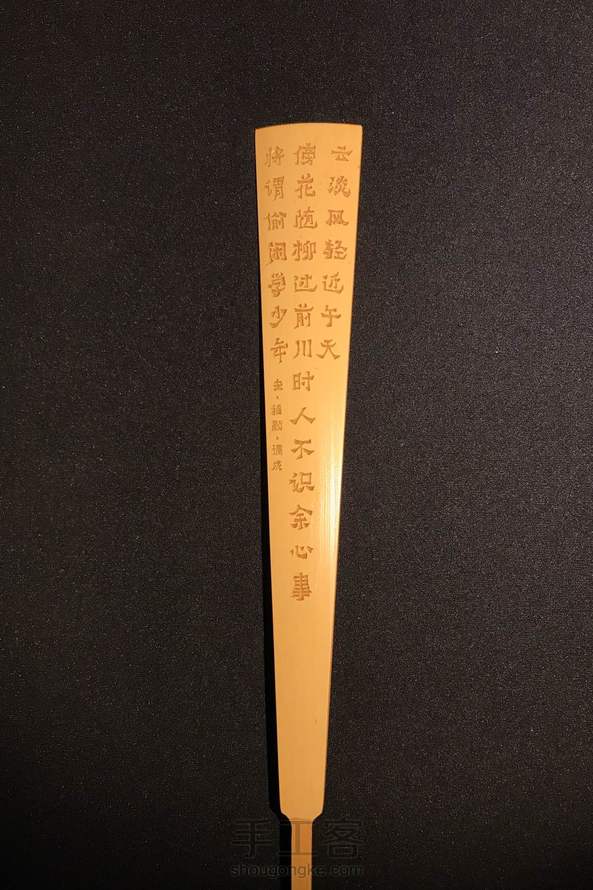 云淡风轻近午天
傍花随柳过前川时人不识余心事
将谓偷闲学少年
宋·程颢·偶成
手工客
shougongke.com